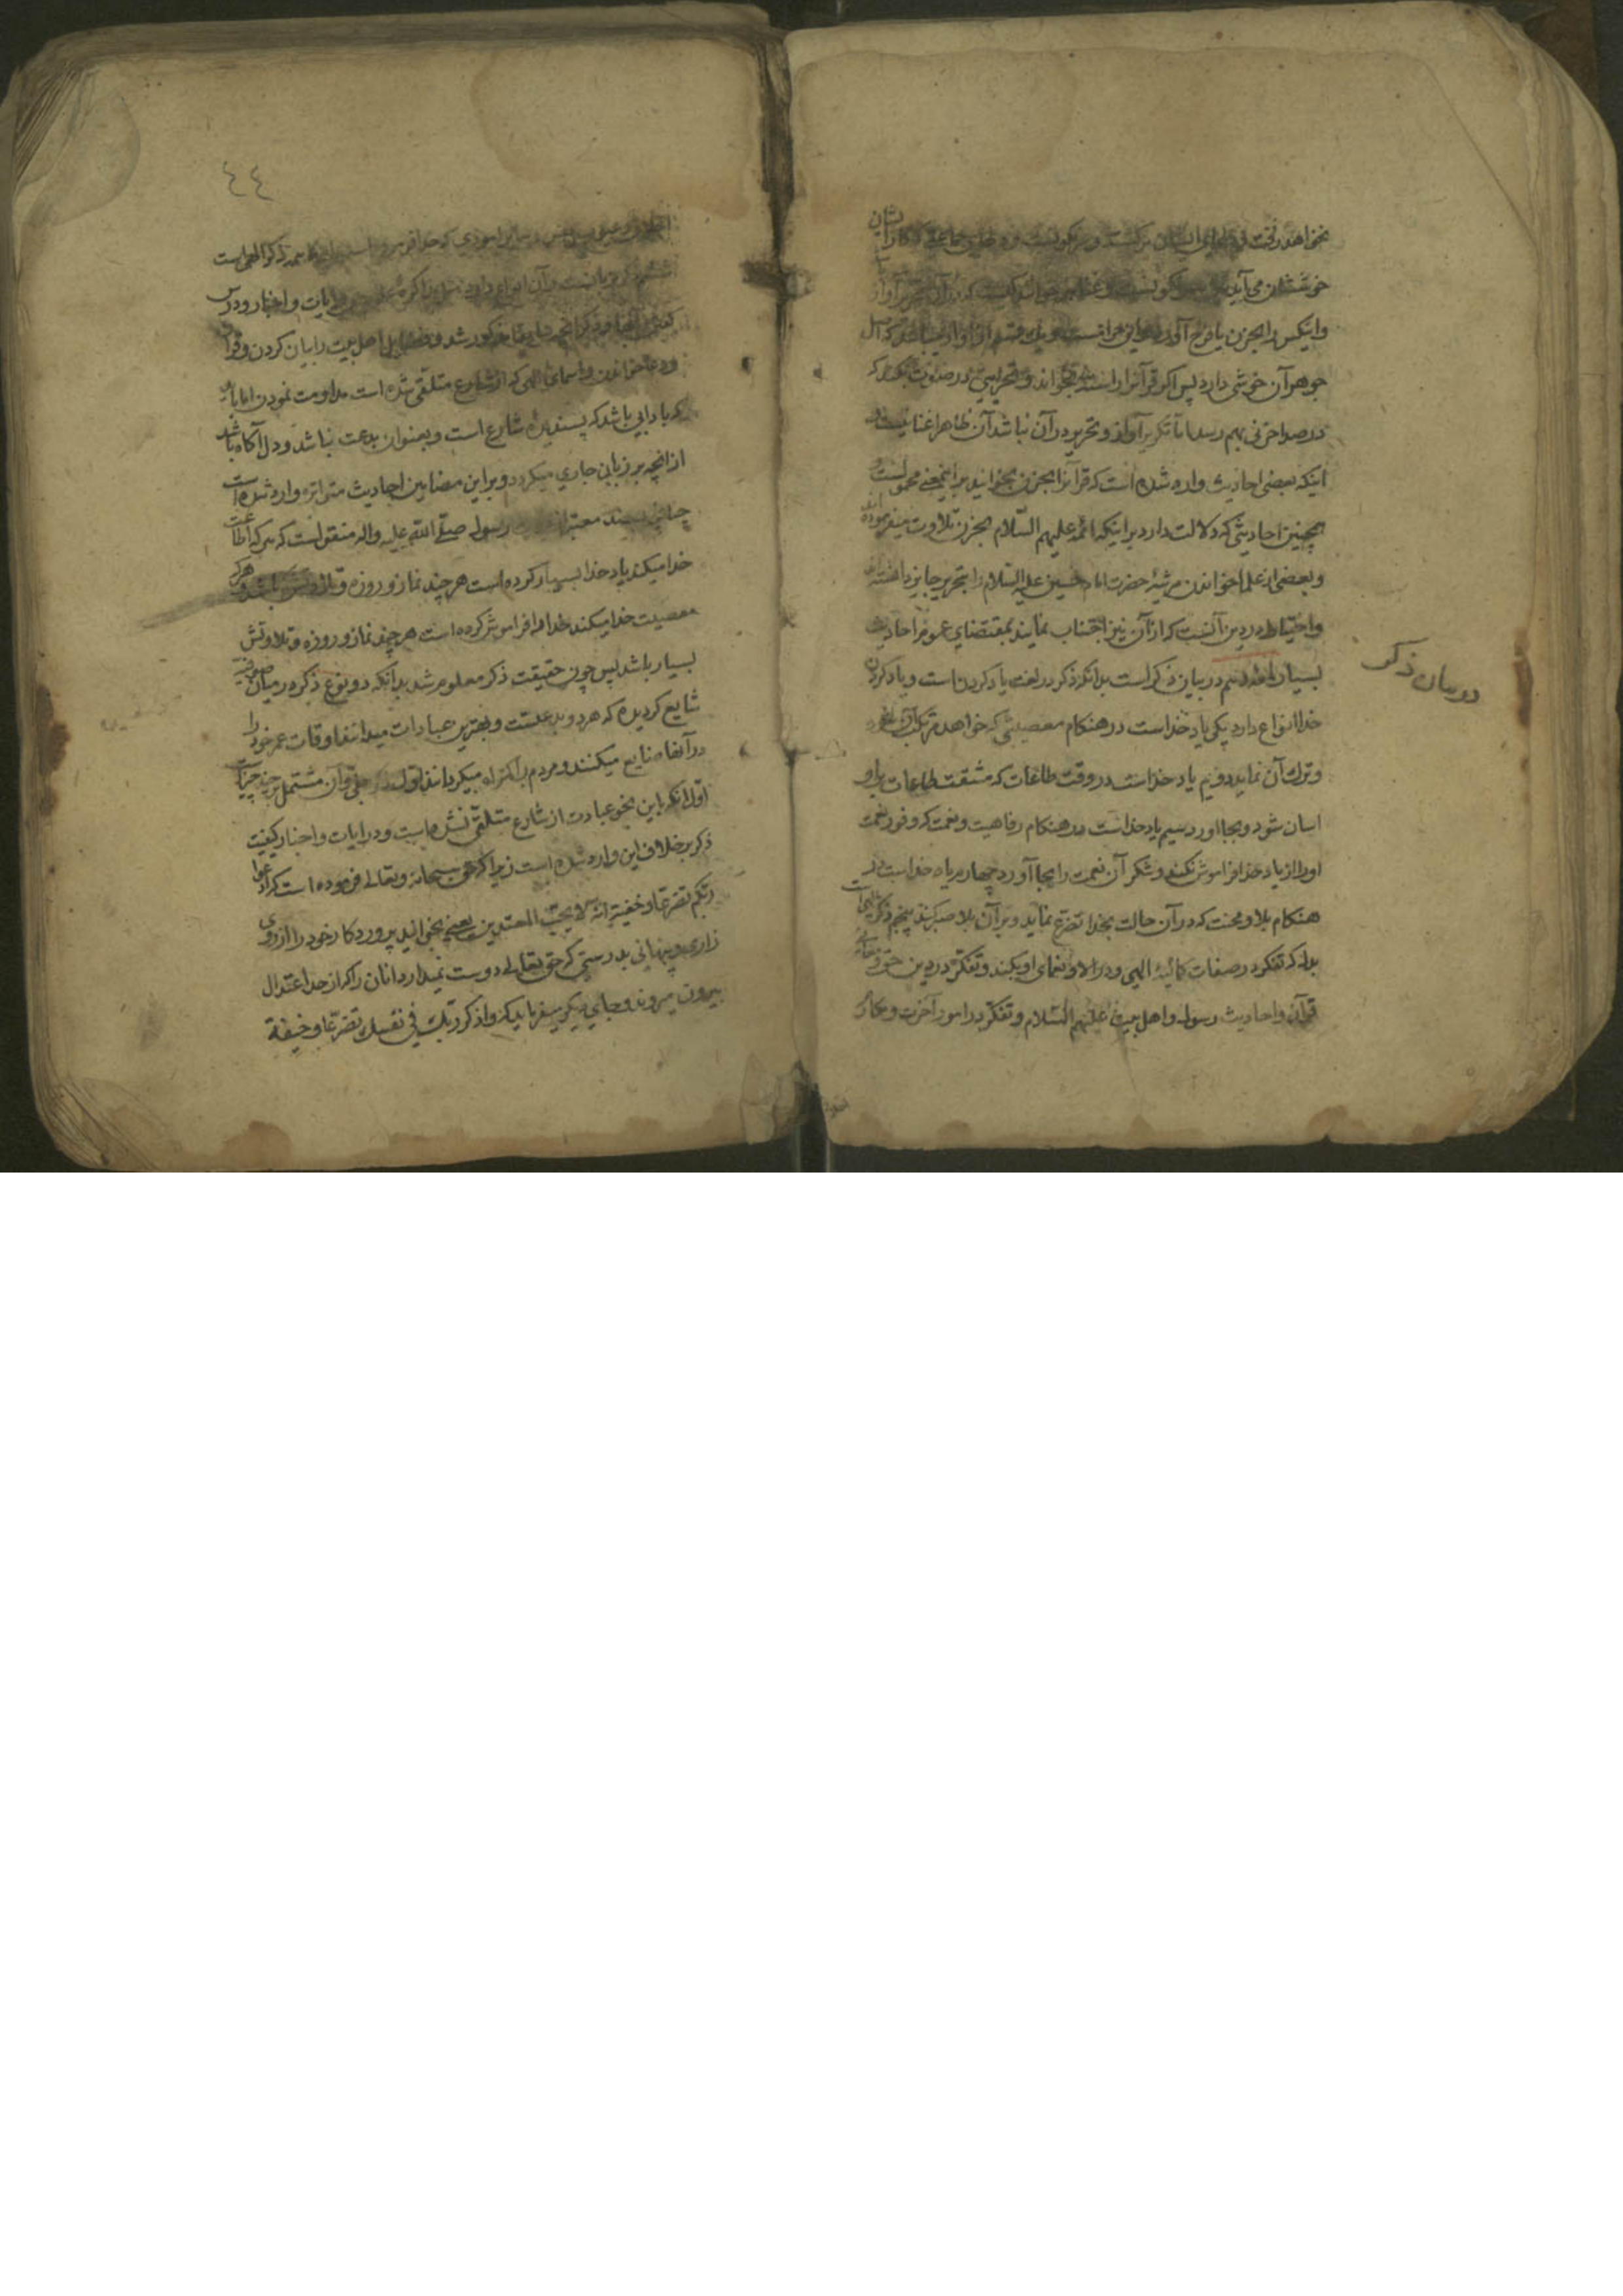 خوششان می‌آید
جوهر آن خوشی دارد پس اگر قرآنرا بخواند و در صوتش
در صدا حزنی بهم رسد اما تکریر آواز و تحریر در آن نباشد آن ظاهرا غنا نیست و
اینکه بعضی احادیث وارد شده است که قرآنرا بحزن بخوانید براینمعنی محمولست و
همچنین احادیثی که دلالت دارد بر اینکه ائمه علیهم السّلام بحزن تلاوت میفرموده‌اند
و بعضی از علما خواندن مرثیهٔ حضرت امام حسین علیه السّلام را بتحریر جایز دانسته‌اند
و احتیاط در دین آنست که از آن نیز اجتناب نمایند بمقتضای عموم احادیث
بسیار در بیان ذکر است بدانکه ذکر در لغت یاد کردن است و یاد کردن
در بیان ذکر
خدا انواع دارد یکی یاد خداست در هنکام معصیتی که خواهد مرتکب آن شود
و ترک آن نماید دویم یاد خداست در وقت طاعات که مشقت طاعات بر او
اسان شود و بجا اورد سیم یاد خداست در هنکام رفاهیت و نعمت که وفور نعمت
اورا از یاد خدا فراموش نکند و شکر آن نعمت را بجا آورد چهارم یاد خداست در
هنکام بلا و محنت که در آن حالت بخدا تضرع نماید و بر آن بلا صبر کند پنجم ذکر
بدل که تفکر در صفات کمالیهٔ الهی و در الا و نعمای او بکند و تفکّر در دین حق و
قرآن و احادیث رسول و اهل بیت علیهم السّلام و تفکّر در امور آخرت و مکارم
٤٤
همه ذکر الهی است
آیات و اخبار و درس
مذکور شد و فضایل اهل بیت را بیان کردن و قرآن
و دعا خواندن و اسمای الهی که از شارع متلقی شده است مداومت نمودن اما باید
که بادابی باشد که پسندیدهٔ شارع است و بعنوان بدعت نباشد و دل آکاه باشد
از انچه بر زبان جاری میکردد و بر این مضامین احادیث متواتره وارد شده است
چنانچه بسند معتبر از رسول صلّی اللّه علیه واله منقول است که هر که اطاعت
خدا میکند یاد خدا بسیار کرده است هر چند نماز و روزه و تلاوتش و هر که
معصیت خدا میکند خدا را فراموش کرده است هر چند نماز و روزه و تلاوتش
بسیار باشد پس چون حقیقت ذکر معلوم شد بدانکه دو نوع ذکر در میان صوفیه
شایع کردیده که هر دو بدعتست و بهترین عبادات میدانند اوقات عمر خود را
در آنها ضایع میکنند و مردم را کمراه میکردانند اول ذکر جلی و آن مشتمل بر چند چیز است
اوّل انکه باین نحو عبادت از شارع متلقّی نشده است و در ایات و اخبار کیفیت
ذکر بر خلاف این وارد شده است زیرا که حق سبحانه و تعالی فرموده است که ادعوا
ربّکم تضرّعا و خفیة انّه لا یحبّ المعتدین یعنی بخوانید پروردکار خود را از روی
زاری و پنهانی بدرستی که حق تعالی دوست نمیدارد انان را که از حد اعتدال
بیرون میروند و جای دیکر میفرماید که واذکر ربّک فی نفسک تضرّعا و خیفة